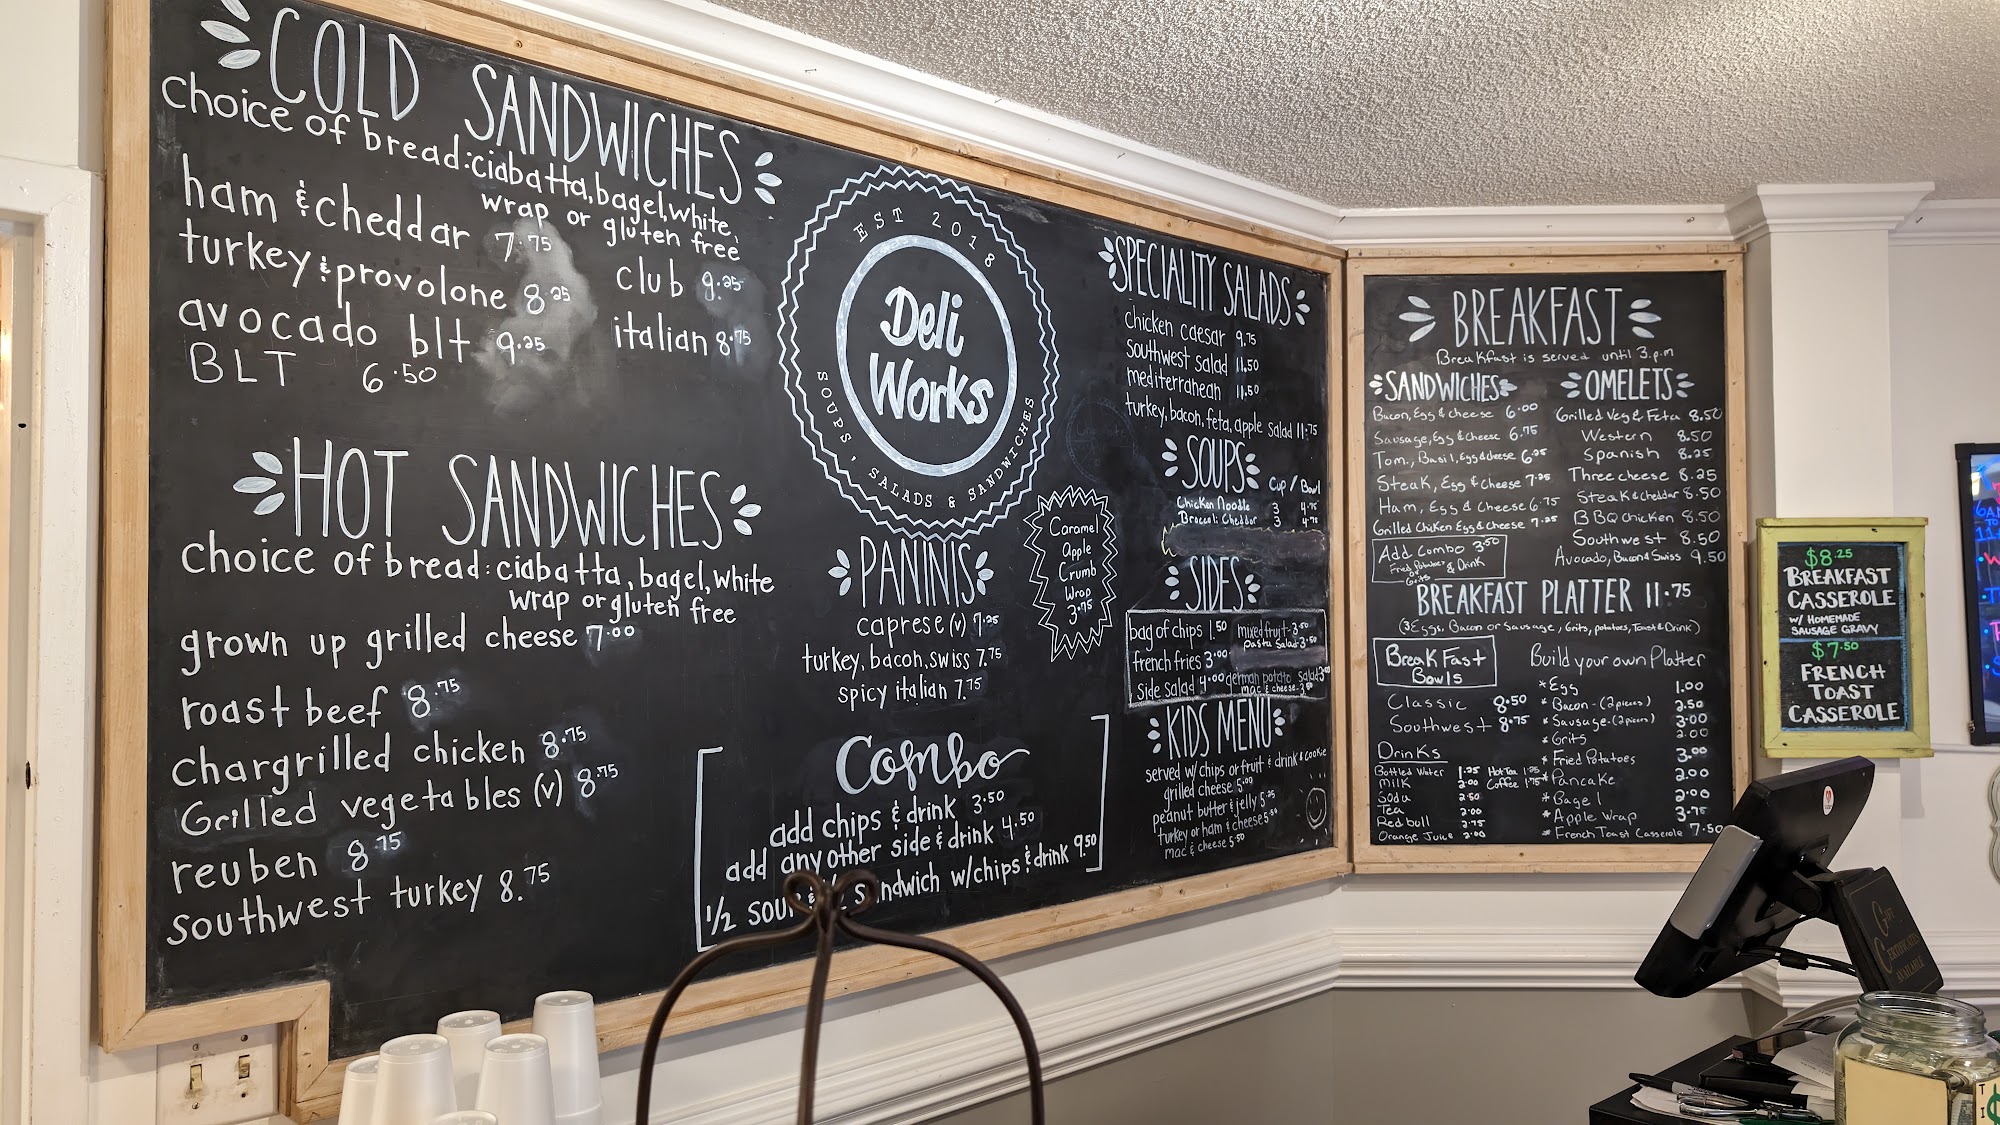 COLD SANDWICHES
choice of bread: ciabatta, bagel, white,
wrap or gluten free
ham & cheddar 7.75
turkey & provolone 8.25
avocado blt 9.25
BLT 6.50
club 9.25
italian 8.75
HOT SANDWICHES
choice of bread: ciabatta, bagel, white
wrap or gluten free
grown up grilled cheese 7.00
roast beef 8.75
chargrilled chicken 8.75
Grilled vegetables (v) 8.75
reuben 8.75
southwest turkey 8.75
EST 2018
Deli
Works
SOUPS, SALADS & SANDWICHES
PANINIS
caprese (v) 7.25
turkey, bacon, swiss 7.75
spicy italian 7.75
Caramel
Apple
Crumb
Wrap
3.75
Combo
add chips & drink 3.50
add any other side & drink 4.50
1/2 soup sandwich w/chips & drink 9.50
SPECIALITY SALADS
chicken caesar 9.75
southwest salad 11.50
mediterranean 11.50
turkey, bacon, feta, apple salad 11.75
SOUPS
Cup / Bowl
Chicken Noodle 3 4.75
Broccoli Cheddar 3 4.75
SIDES
bag of chips 1.50
french fries 3.00
side salad 4.00
mixed fruit - 3.50
pasta salad - 3.50
german potato salad 3.50
mac & cheese - 3.50
KIDS MENU
served w/ chips or fruit & drink & cookie
grilled cheese 5.00
peanut butter & jelly 5.25
turkey or ham & cheese 5.50
mac & cheese 5.50
BREAKFAST
Breakfast is served until 3.p.m
SANDWICHES
Bacon, Egg & cheese 6.00
Sausage, Egg & cheese 6.75
Tom., Basil, Egg & cheese 6.25
Steak, Egg & Cheese 7.25
Ham, Egg & Cheese 6.75
Grilled Chicken Egg & Cheese 7.25
Add Combo 3.50
Fried Potatoes & Drink
or Grits
OMELETS
Grilled Veg & Feta 8.50
Western 8.50
Spanish 8.25
Three cheese 8.25
Steak & cheddar 8.50
BBQ chicken 8.50
Southwest 8.50
Avocado, Bacon & Swiss 9.50
BREAKFAST PLATTER 11.75
(3 Eggs, Bacon or Sausage, Grits, potatoes, Toast & Drink)
BreakFast
Bowls
Classic 8.50
Southwest 8.75
Drinks
Bottled Water 1.25
Milk 2.00
Soda 2.50
Tea 2.00
Red bull 2.75
Orange Juice 2.00
Hot Tea 1.25
Coffee 1.75
Build your own Platter
* Egg 1.00
* Bacon - (2 pieces) 2.50
* Sausage - (2 pieces) 3.00
* Grits 2.00
* Fried Potatoes 3.00
* Pancake 2.00
* Bagel 2.00
* Apple Wrap 3.75
* French Toast Casserole 7.50
$8.25
BREAKFAST
CASSEROLE
W/ HOMEMADE
SAUSAGE GRAVY
$7.50
FRENCH
TOAST
CASSEROLE
GIFT
CERTIFICATES
AVAILABLE